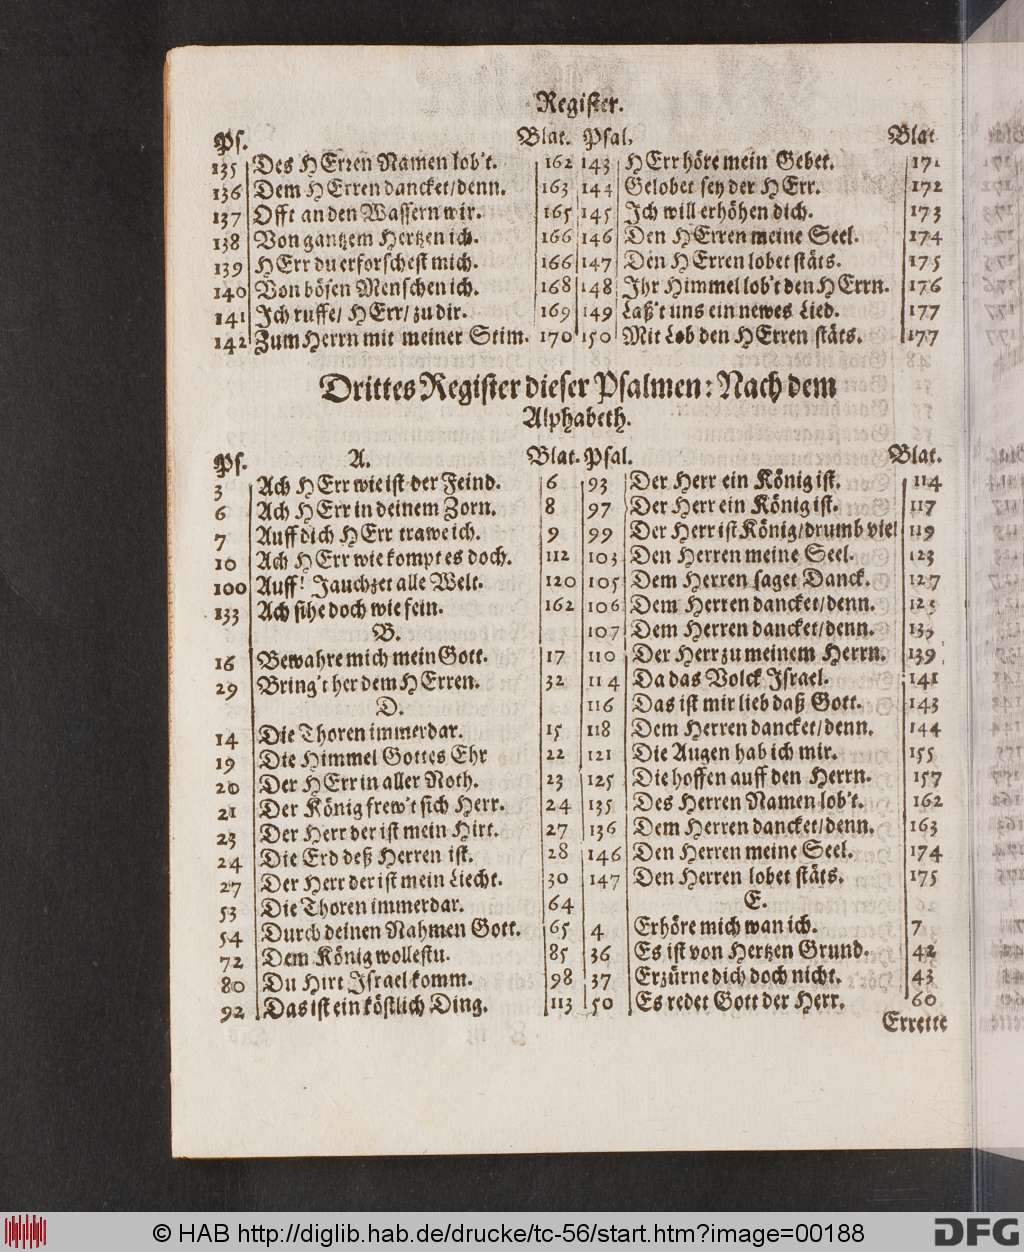 Register.
Ps. Blat. Psal. Blat
135 Des HErren Namen lob't. 162 143 HErr höre mein Gebet. 171
136 Dem HErren dancket/denn. 163 144 Gelobet sey der HErr. 172
137 Offt an den Wassern wir. 165 145 Jch will erhöhen dich. 173
138 Von gantzem Hertzen ich. 166 146 Den HErren meine Seel. 174
139 HErr du erforschest mich. 166 147 Den HErren lobet stäts. 175
140 Von bösen Menschen ich. 168 148 Jhr Himmel lob't den HErrn. 176
141 Jch ruffe/ HErr/ zu dir. 169 149 Laß't uns ein newes Lied. 177
142 Zum Herrn mit meiner Stim. 170 150 Mit Lob den HErren stäts. 177
Drittes Register dieser Psalmen: Nach dem
Alphabeth.
Ps. A. Blat. Psal. Blat.
3 Ach HErr wie ist der Feind. 6 93 Der Herr ein König ist. 114
6 Ach HErr in deinem Zorn. 8 97 Der Herr ein König ist. 117
7 Auff dich HErr trawe ich. 9 99 Der Herr ist König/drumb viel 119
10 Ach HErr wie kompt es doch. 112 103 Den Herren meine Seel. 123
100 Auff! Jauchzet alle Welt. 120 105 Dem Herren saget Danck. 127
133 Ach sihe doch wie fein. 162 106 Dem Herren dancket/denn.
B. 107 Dem Herren dancket/denn.
16 Bewahre mich mein Gott. 17 110 Der Herr zu meinem Herrn. 139
29 Bring't her dem HErren. 32 114 Da das Volck Jsrael. 141
D. 116 Das ist mir lieb daß Gott. 143
14 Die Thoren immerdar. 15 118 Dem Herren dancket/denn. 144
19 Die Himmel Gottes Ehr 22 121 Die Augen hab ich mir. 155
20 Der HErr in aller Noth. 23 125 Die hoffen auff den Herrn. 157
21 Der König frew't sich Herr. 24 135 Des Herren Namen lob't. 162
23 Der Herr der ist mein Hirt. 27 136 Dem Herren dancket/denn. 163
24 Die Erd deß Herren ist. 28 146 Den Herren meine Seel. 174
27 Der Herr der ist mein Liecht. 30 147 Den Herren lobet stäts. 175
53 Die Thoren immerdar. 64 E.
54 Durch deinen Nahmen Gott. 65 4 Erhöre mich wan ich. 7
72 Dem König wollestu. 85 36 Es ist von Hertzen Grund. 42
80 Du Hirt Jsrael komm. 98 37 Erzürne dich doch nicht. 43
92 Das ist ein köstlich Ding. 113 50 Es redet Gott der Herr. 60
Errette
© HAB http://diglib.hab.de/drucke/tc-56/start.htm?image=00188 DFG